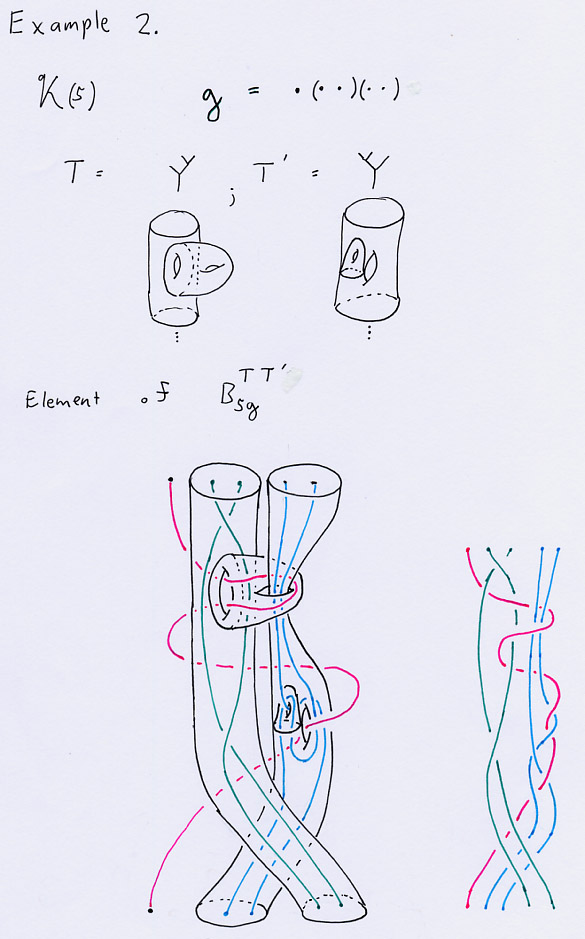 Example 2.
K(5) g = •(••)(••)
T = Y ; T' = Y
Element of B_{5g}^{TT'}